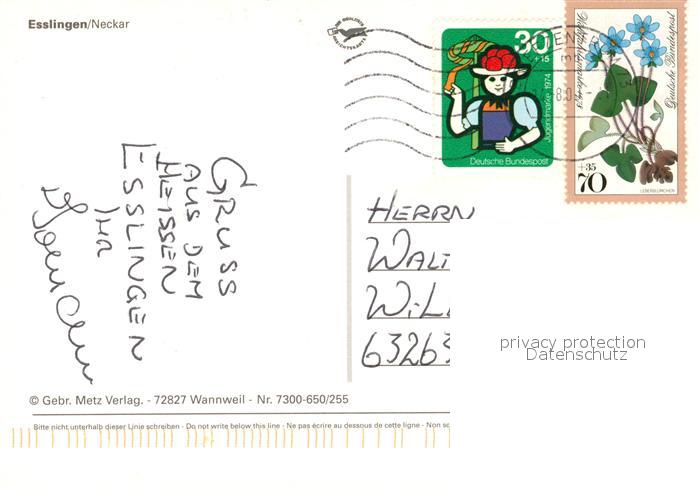 Esslingen/Neckar
30
+15
Jugendmarke 1974
Deutsche Bundespost
Wohlfahrtsmarke
Deutsche Bundespost
+35
70
LEBERBLÜMCHEN
GRUSS
AUS DEM
HEISSEN
ESSLINGEN
IHR
HERRN
WALT
WIL
63263
privacy protection
Datenschutz
© Gebr. Metz Verlag. - 72827 Wannweil - Nr. 7300-650/255
Bitte nicht unterhalb dieser Linie schreiben - Do not write below this line - Ne pas écrire au dessous de cette ligne - Non sc